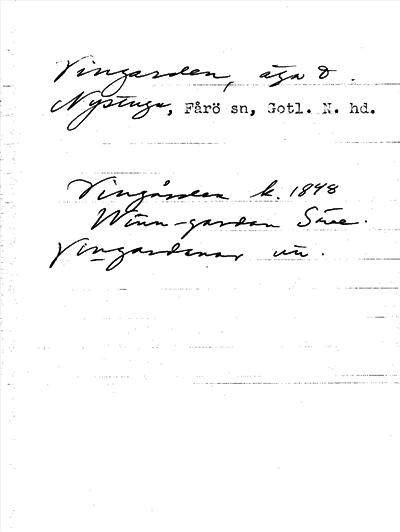 Vingarden, äga o.
Nystuga, Fårö sn, Gotl. N. hd.
Vingården k. 1848
Winn-gardan Säve.
Vingardanar un.